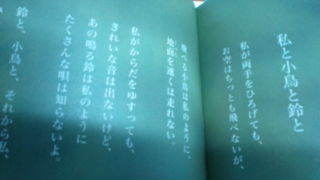 私と小鳥と鈴と
私が両手をひろげても、
お空はちっとも飛べないが、
飛べる小鳥は私のように、
地面を速くは走れない。
私がからだをゆすっても、
きれいな音は出ないけど、
あの鳴る鈴は私のように
たくさんな唄は知らないよ。
鈴と、小鳥と、それから私、